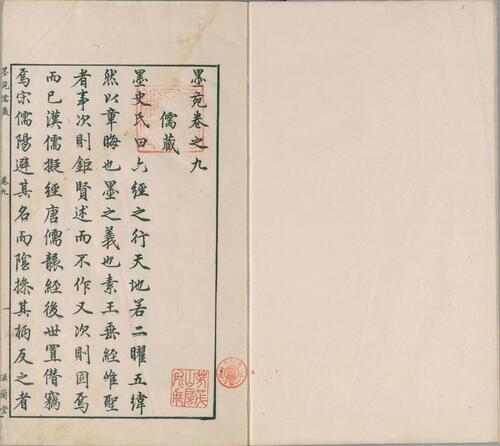 墨苑卷之九
儒藏
墨史氏曰六經之行天地若二曜五緯
然以章晦也墨之義也素王垂經雖聖
者事次則鉅賢述而不作又次則固焉
而已漢儒擬經唐儒襲經後世置僭竊
焉宗儒陽避其名而陰操其柄反之者
墨苑儒藏
卷九
一
滋蘭堂